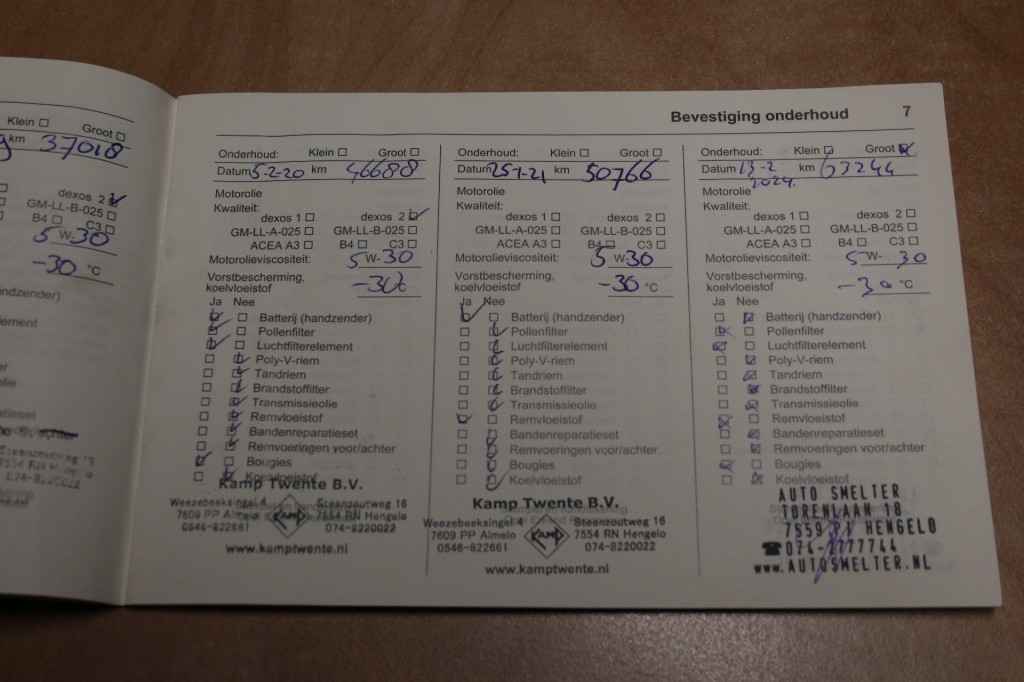 Klein ☐ Groot ☐
km 37018
dexos 2 ☑
GM-LL-B-025 ☐
B4 ☐ C3 ☐
5 W-30
-30 °C
andzender)
lement
Bevestiging onderhoud 7
Onderhoud: Klein ☐ Groot ☐
Datum 5-2-20 km 46688
Motorolie
Kwaliteit:
dexos 1 ☐ dexos 2 ☑
GM-LL-A-025 ☐ GM-LL-B-025 ☐
ACEA A3 ☐ B4 ☐ C3 ☐
Motorolieviscositeit: 5 W-30
Vorstbescherming,
koelvloeistof -30
Ja Nee
☑ ☐ Batterij (handzender)
☑ ☐ Pollenfilter
☑ ☐ Luchtfilterelement
☐ ☑ Poly-V-riem
☐ ☑ Tandriem
☐ ☑ Brandstoffilter
☐ ☑ Transmissieolie
☐ ☑ Remvloeistof
☐ ☑ Bandenreparatieset
☐ ☑ Remvoeringen voor/achter
☑ ☐ Bougies
☐ ☑ Koelvloeistof
Kamp Twente B.V.
Weezebeeksingel 4 Steenzoutweg 16
7609 PP Almelo KAMP 7554 RN Hengelo
0546-822661 074-8220022
www.kamptwente.nl
Onderhoud: Klein ☐ Groot ☐
Datum 25-1-21 km 50766
Motorolie
Kwaliteit:
dexos 1 ☐ dexos 2 ☐
GM-LL-A-025 ☐ GM-LL-B-025 ☐
ACEA A3 ☐ B4 ☐ C3 ☐
Motorolieviscositeit: 5 W-30
Vorstbescherming,
koelvloeistof -30 °C
Ja Nee
☑ ☐ Batterij (handzender)
☐ ☑ Pollenfilter
☐ ☑ Luchtfilterelement
☐ ☑ Poly-V-riem
☐ ☑ Tandriem
☐ ☑ Brandstoffilter
☐ ☑ Transmissieolie
☑ ☐ Remvloeistof
☐ ☐ Bandenreparatieset
☐ ☑ Remvoeringen voor/achter
☐ ☑ Bougies
☐ ☑ Koelvloeistof
Kamp Twente B.V.
Weezebeeksingel 4 Steenzoutweg 16
7609 PP Almelo KAMP 7554 RN Hengelo
0546-822661 074-8220022
www.kamptwente.nl
Onderhoud: Klein ☐ Groot ☑
Datum 13-2 km 63244
2024.
Motorolie
Kwaliteit:
dexos 1 ☐ dexos 2 ☐
GM-LL-A-025 ☐ GM-LL-B-025 ☐
ACEA A3 ☐ B4 ☐ C3 ☐
Motorolieviscositeit: 5 W-30
Vorstbescherming,
koelvloeistof -30 °C
Ja Nee
☐ ☑ Batterij (handzender)
☑ ☐ Pollenfilter
☑ ☐ Luchtfilterelement
☐ ☑ Poly-V-riem
☐ ☑ Tandriem
☐ ☑ Brandstoffilter
☐ ☑ Transmissieolie
☑ ☐ Remvloeistof
☐ ☑ Bandenreparatieset
☐ ☑ Remvoeringen voor/achter
☑ ☐ Bougies
☐ ☑ Koelvloeistof
AUTO SMELTER
TORENLAAN 18
7559 PJ HENGELO
☎074-2777744
www.AUTOSMELTER.NL